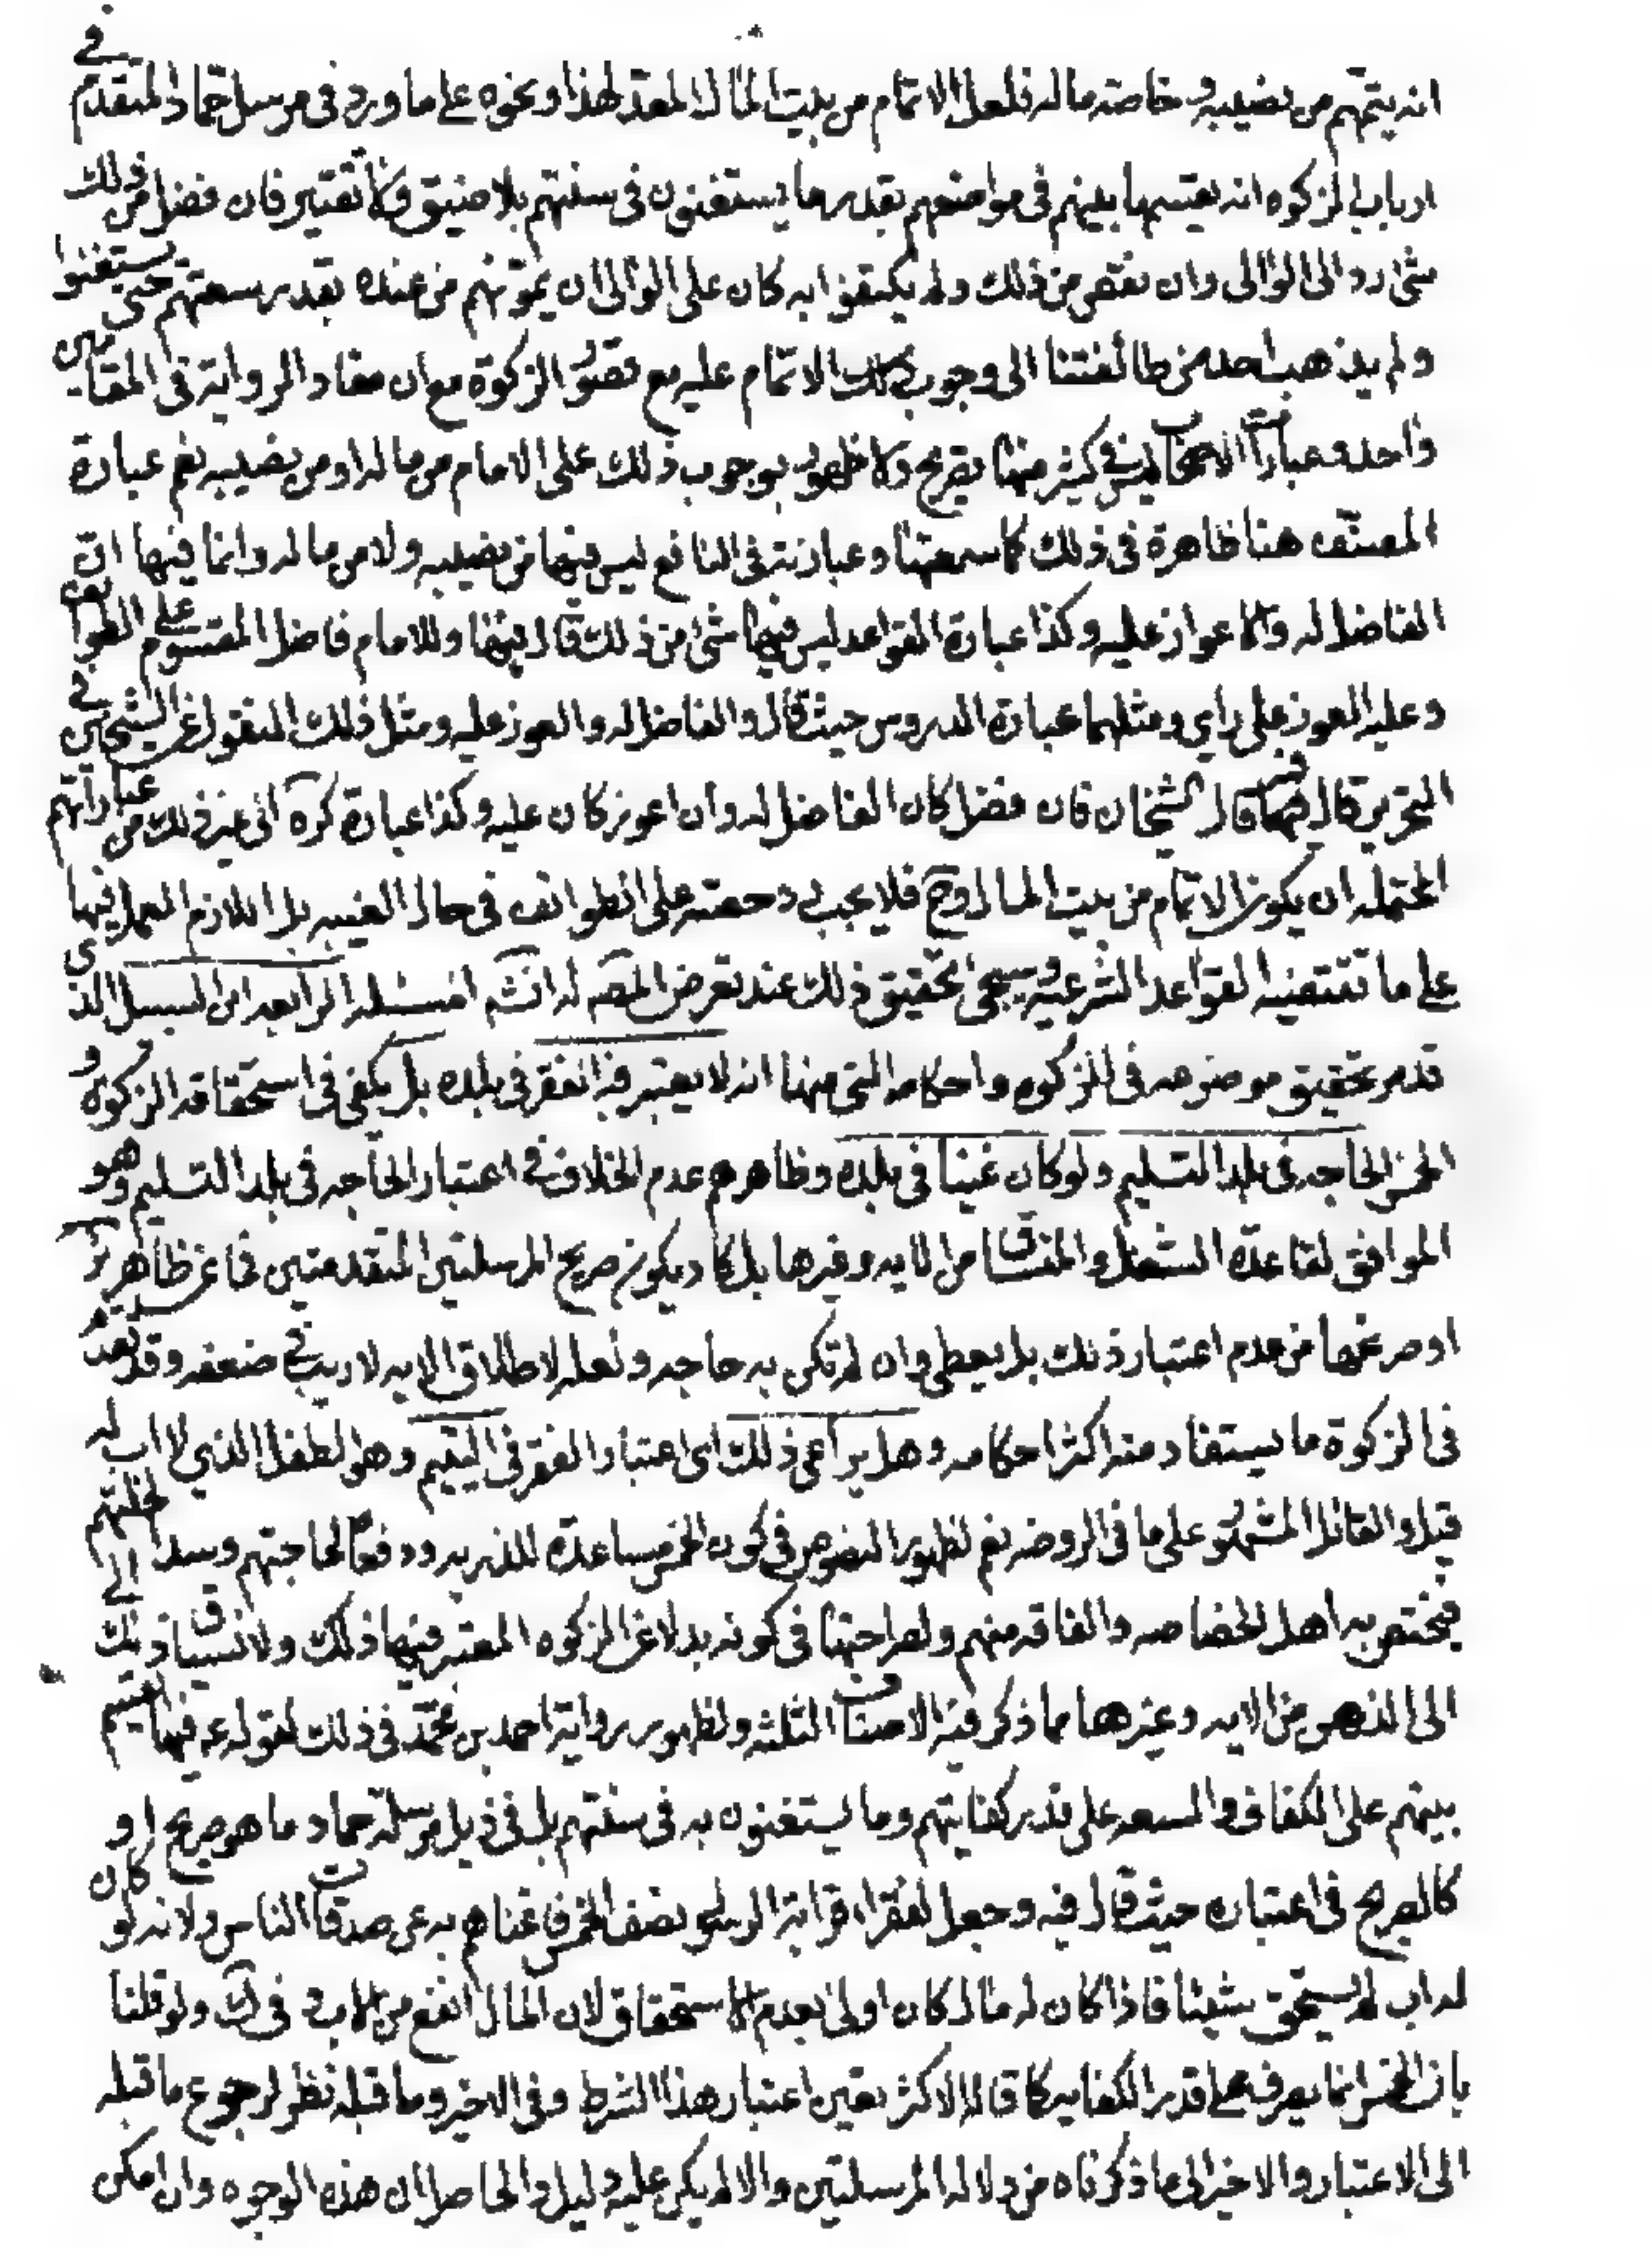 انه يتمهم من نصيبه وخاصته ماله فلعل الاتمام من بيت المال المعد لهذا ونحوه على ما ورد في مرسل حماد المتقدم في
ارباب الزكوه انه يقسمها بينهم في مواضعهم بقدر ما يستغنون في سنتهم بلا ضيق ولا تقتير فان فضل من ذلك
شئ رد الى الوالى وان نقص من ذلك ولم يكتفوا به كان على الوالى ان يمونهم من عنده بقدر سعتهم حتى يستغنوا
ولم يذهب احد من طائفتنا الى وجوب ذلك الاتمام عليه مع قصور الزكوة مع ان مفاد الرواية في المقامين
واحد وعبارات الاصحاب ليس في كثير منها تصريح ولا ظهور بوجوب ذلك على الامام من ماله او من نصيبه نعم عبارة
المصنف هنا ظاهرة في ذلك كما سمعتها وعبارته في النافع ليس فيها من نصيبه ولا من ماله وانما فيها ان
الفاضل له والاعواز عليه وكذا عبارة القواعد ليس فيها شئ من ذلك قال فيها وللامام فاضل المقسوم على الطوائف
وعليه المعوز على راي ومثلهما عبارة الدروس حيث قال والفاضل له والمعوز عليه ومثل ذلك المنقول عن الشيخين في
التحرير قال فيها قال الشيخان فان فضل كان الفاضل له وان اعوز كان عليه وكذا عبارة كره الى غير ذلك من عباراتهم
المحتمله ان يكون الاتمام من بيت المال وح فلا يجب دحصته على الطوائف في حال الغيبه بل اللازم العمل فيها
على ما تقتضيه القواعد الشرعيه وسيجئ تحقيق ذلك عند تعرض المصه له انش المسئله الرابعه ابن السبيل الذى
قد مر تحقيق موضوعه في الزكوه واحكامه التى منها انه لا يعتبر فيه الفقر في بلده بل يكفى في استحقاقه الزكوه و
الخمس الحاجه في بلد التسليم ولو كان غنيا في بلده وظاهرهم عدم الخلاف في اعتبار الحاجه في بلد التسليم وهو
الموافق لقاعدة الشغل والمنساق من الايه وغيرها بل كاد يكون صريح المرسلتين المتقدمتين فما عن ظاهر ئر
او صريحها من عدم اعتبار ذلك بل يعطى وان لم تكن به حاجه ولعله لاطلاق الايه لا ريب في ضعفه وقد تقدم
في الزكوة ما يستفاد منه اكثر احكامه وهل يراعى ذلك اى اعتبار الفقر في اليتيم وهو الطفل الذي لا اب له
قيل والقائل المشهور على ما في الروضه نعم لظهور النصوص في كون الخمس مساعدة للذريه ودفعا لحاجتهم وسدا لخلتهم
فيختص به اهل الخصاصه والفاقه منهم ولصراحتها في كونه بدلا عن الزكوه المعتبر فيها ذلك ولانسياق ذلك الى
الى الذهن من الايه وغيرها مما ذكر فيه الاصناف الثلثه ولظهور رواية احمد بن محمد في ذلك لقوله ع فيها يقسم
بينهم على الكفاف والسعه على قدر كفايتهم وما يستغنون به في سنتهم بل في ذيل مرسلة حماد ما هو صريح او
كالصريح في اعتباره حيث قال فيه وجعل لفقراء قرابة الرسول نصف الخمس فاغناهم به عن صدقات الناس ولانه لو كان
له اب لم يستحق شيئا فاذا كان له مال كان اولى بعدم الاستحقاق لان المال انفع من الاب وفي ك ولو قلنا
بان الخمس انما يصرف على قدر الكفايه كما قاله الاكثر تعين اعتبار هذا الشرط وفي الاخير وما قبله نظر لرجوع ما قبله
الى الاعتبار والاخير الى ما ذكرناه من دلاله المرسلتين والا لم يكن عليه دليل والحاصل ان هذه الوجوه وان امكن